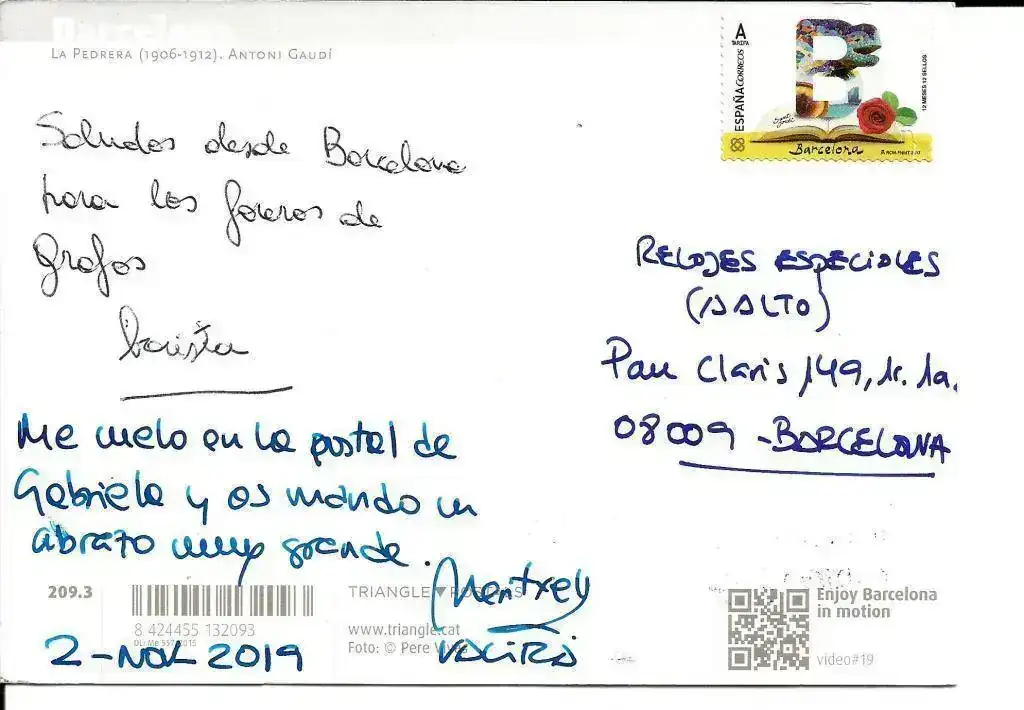 Barcelona
LA PEDRERA (1906-1912). ANTONI GAUDÍ
A
TARIFA
ESPAÑA CORREOS
12 MESES 12 SELLOS
Barcelona
Saludos desde Barcelona
para los foreros de
Grafos
RELOJES ESPECIALES
(AALTO)
Pau Claris 149, 1r. 1a.
08009 - BARCELONA
Me cuelo en la postal de
Gabriela y os mando un
abrazo muy grande.
209.3
8 424455 132093
TRIANGLE▼POSTALS
www.triangle.cat
Foto: © Pere Vivas
2 - NOV. 2019
Enjoy Barcelona
in motion
video#19